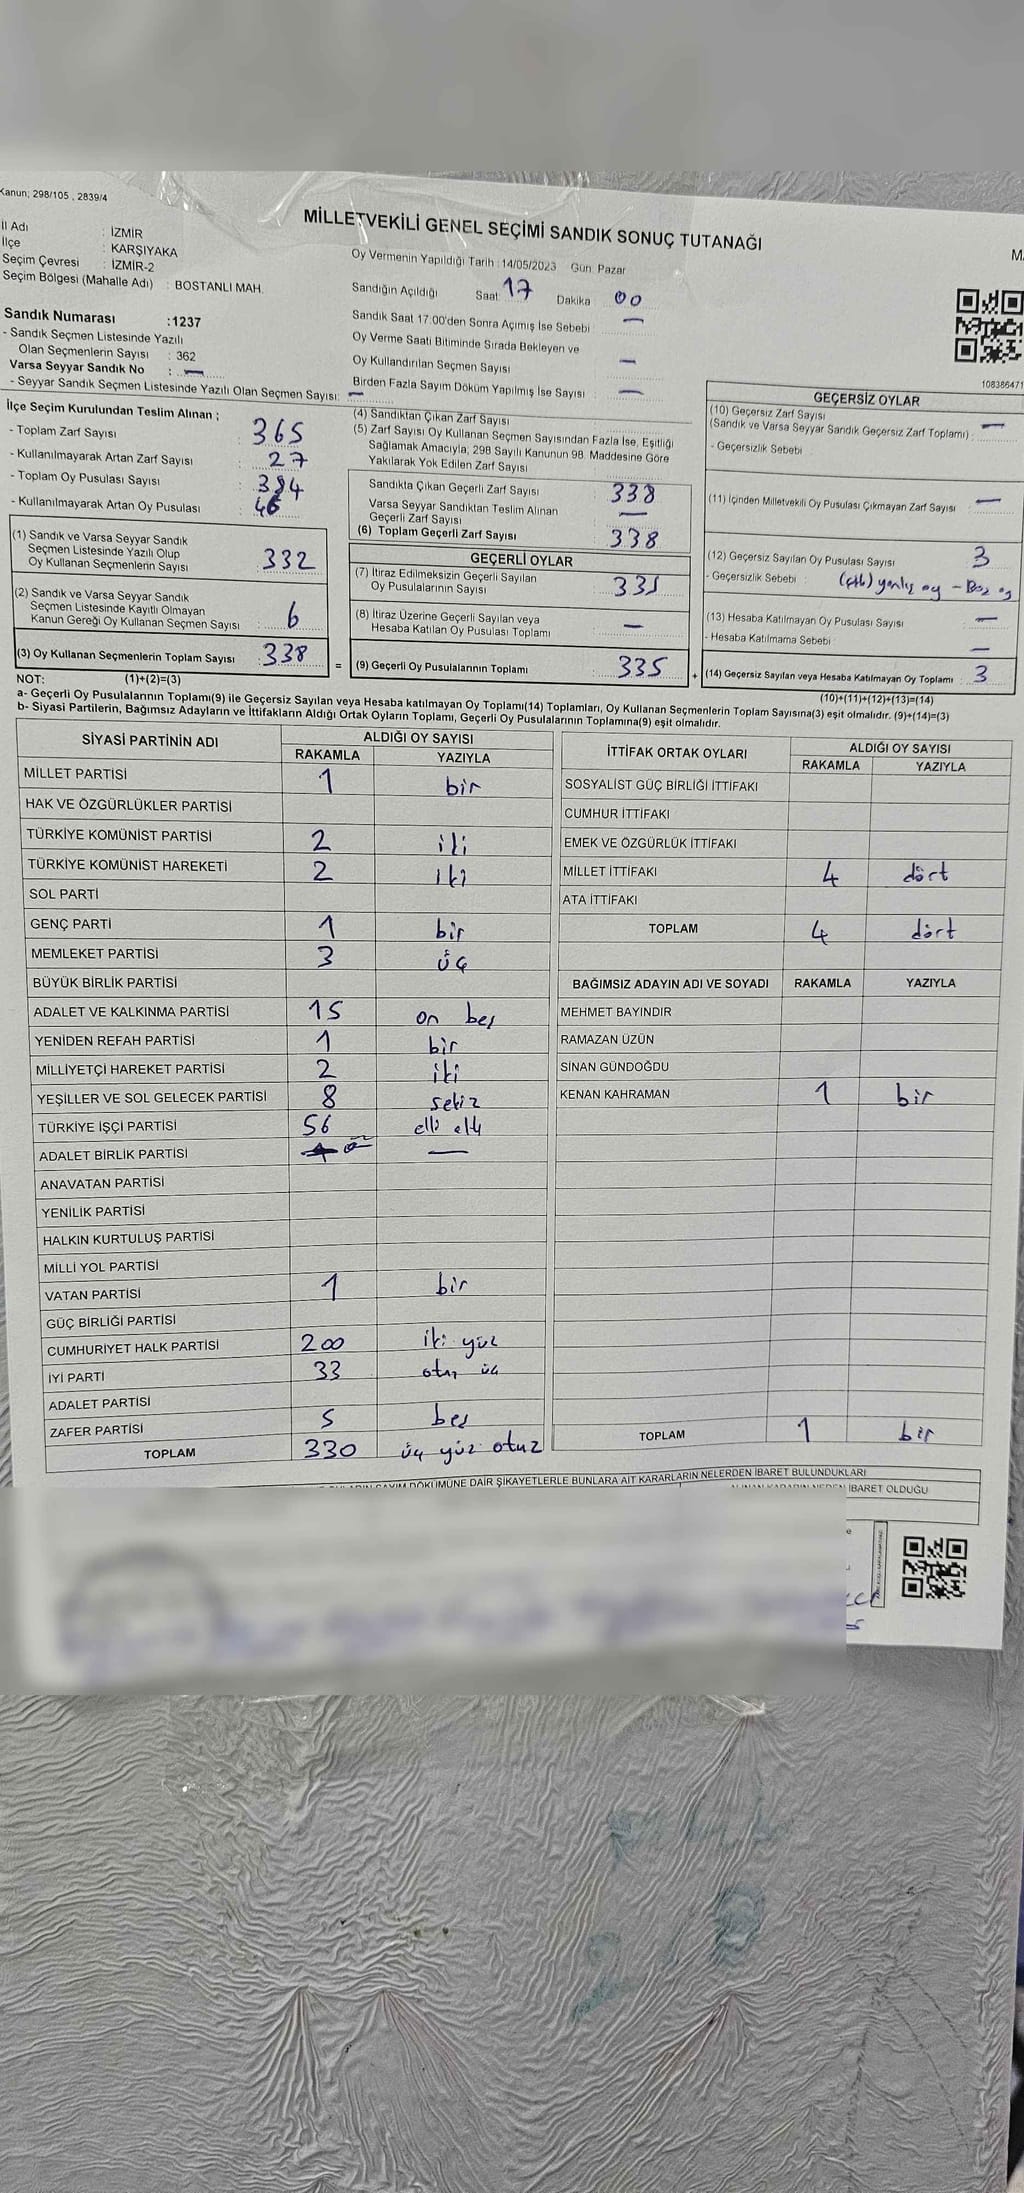 Kanun; 298/105 , 2839/4
MİLLETVEKİLİ GENEL SEÇİMİ SANDIK SONUÇ TUTANAĞI
İl Adı : İZMİR
İlçe : KARŞIYAKA
Seçim Çevresi : İZMİR-2
Seçim Bölgesi (Mahalle Adı) : BOSTANLI MAH.
Oy Vermenin Yapıldığı Tarih :14/05/2023 Gün Pazar
Sandığın Açıldığı Saat: 17 Dakika 00
Sandık Saat 17:00'den Sonra Açımış İse Sebebi —
Oy Verme Saati Bitiminde Sırada Bekleyen ve
Oy Kullandırılan Seçmen Sayısı —
Birden Fazla Sayım Döküm Yapılmış İse Sayısı —
108386471
Sandık Numarası :1237
- Sandık Seçmen Listesinde Yazılı
Olan Seçmenlerin Sayısı : 362
Varsa Seyyar Sandık No : —
- Seyyar Sandık Seçmen Listesinde Yazılı Olan Seçmen Sayısı: —
İlçe Seçim Kurulundan Teslim Alınan ;
- Toplam Zarf Sayısı : 365
- Kullanılmayarak Artan Zarf Sayısı : 27
- Toplam Oy Pusulası Sayısı : 384
- Kullanılmayarak Artan Oy Pusulası : 46
(1) Sandık ve Varsa Seyyar Sandık
Seçmen Listesinde Yazılı Olup
Oy Kullanan Seçmenlerin Sayısı : 332
(2) Sandık ve Varsa Seyyar Sandık
Seçmen Listesinde Kayıtlı Olmayan
Kanun Gereği Oy Kullanan Seçmen Sayısı : 6
(3) Oy Kullanan Seçmenlerin Toplam Sayısı : 338
(4) Sandıktan Çıkan Zarf Sayısı :
(5) Zarf Sayısı Oy Kullanan Seçmen Sayısından Fazla İse, Eşitliği
Sağlamak Amacıyla, 298 Sayılı Kanunun 98. Maddesine Göre
Yakılarak Yok Edilen Zarf Sayısı :
Sandıkta Çıkan Geçerli Zarf Sayısı : 338
Varsa Seyyar Sandıktan Teslim Alınan
Geçerli Zarf Sayısı : —
(6) Toplam Geçerli Zarf Sayısı : 338
GEÇERLİ OYLAR
(7) İtiraz Edilmeksizin Geçerli Sayılan
Oy Pusulalarının Sayısı : 335
(8) İtiraz Üzerine Geçerli Sayılan veya
Hesaba Katılan Oy Pusulası Toplamı : —
= (9) Geçerli Oy Pusulalarının Toplamı : 335 +
GEÇERSİZ OYLAR
(10) Geçersiz Zarf Sayısı
(Sandık ve Varsa Seyyar Sandık Geçersiz Zarf Toplamı) : —
- Geçersizlik Sebebi :
(11) İçinden Milletvekili Oy Pusulası Çıkmayan Zarf Sayısı : —
(12) Geçersiz Sayılan Oy Pusulası Sayısı : 3
- Geçersizlik Sebebi : yanlış oy - Boş oy
(13) Hesaba Katılmayan Oy Pusulası Sayısı : —
- Hesaba Katılmama Sebebi : —
(14) Geçersiz Sayılan veya Hesaba Katılmayan Oy Toplamı : 3
NOT: (1)+(2)=(3)
(10)+(11)+(12)+(13)=(14)
a- Geçerli Oy Pusulalarının Toplamı(9) ile Geçersiz Sayılan veya Hesaba katılmayan Oy Toplamı(14) Toplamları, Oy Kullanan Seçmenlerin Toplam Sayısına(3) eşit olmalıdır. (9)+(14)=(3)
b- Siyasi Partilerin, Bağımsız Adayların ve İttifakların Aldığı Ortak Oyların Toplamı, Geçerli Oy Pusulalarının Toplamına(9) eşit olmalıdır.
SİYASİ PARTİNİN ADI ALDIĞI OY SAYISI
RAKAMLA YAZIYLA
MİLLET PARTİSİ 1 bir
HAK VE ÖZGÜRLÜKLER PARTİSİ
TÜRKİYE KOMÜNİST PARTİSİ 2 iki
TÜRKİYE KOMÜNİST HAREKETİ 2 iki
SOL PARTİ
GENÇ PARTİ 1 bir
MEMLEKET PARTİSİ 3 üç
BÜYÜK BİRLİK PARTİSİ
ADALET VE KALKINMA PARTİSİ 15 on beş
YENİDEN REFAH PARTİSİ 1 bir
MİLLİYETÇİ HAREKET PARTİSİ 2 iki
YEŞİLLER VE SOL GELECEK PARTİSİ 8 sekiz
TÜRKİYE İŞÇİ PARTİSİ 56 elli altı
ADALET BİRLİK PARTİSİ —
ANAVATAN PARTİSİ
YENİLİK PARTİSİ
HALKIN KURTULUŞ PARTİSİ
MİLLİ YOL PARTİSİ
VATAN PARTİSİ 1 bir
GÜÇ BİRLİĞİ PARTİSİ
CUMHURİYET HALK PARTİSİ 200 iki yüz
İYİ PARTİ 33 otuz üç
ADALET PARTİSİ
ZAFER PARTİSİ 5 beş
TOPLAM 330 üç yüz otuz
İTTİFAK ORTAK OYLARI ALDIĞI OY SAYISI
RAKAMLA YAZIYLA
SOSYALİST GÜÇ BİRLİĞİ İTTİFAKI
CUMHUR İTTİFAKI
EMEK VE ÖZGÜRLÜK İTTİFAKI
MİLLET İTTİFAKI 4 dört
ATA İTTİFAKI
TOPLAM 4 dört
BAĞIMSIZ ADAYIN ADI VE SOYADI RAKAMLA YAZIYLA
MEHMET BAYINDIR
RAMAZAN UZUN
SİNAN GÜNDOĞDU
KENAN KAHRAMAN 1 bir
TOPLAM 1 bir
SAYIM DÖKÜMÜNE DAİR ŞİKAYETLERLE BUNLARA AİT KARARLARIN NELERDEN İBARET BULUNDUKLARI
İBARET OLDUĞU